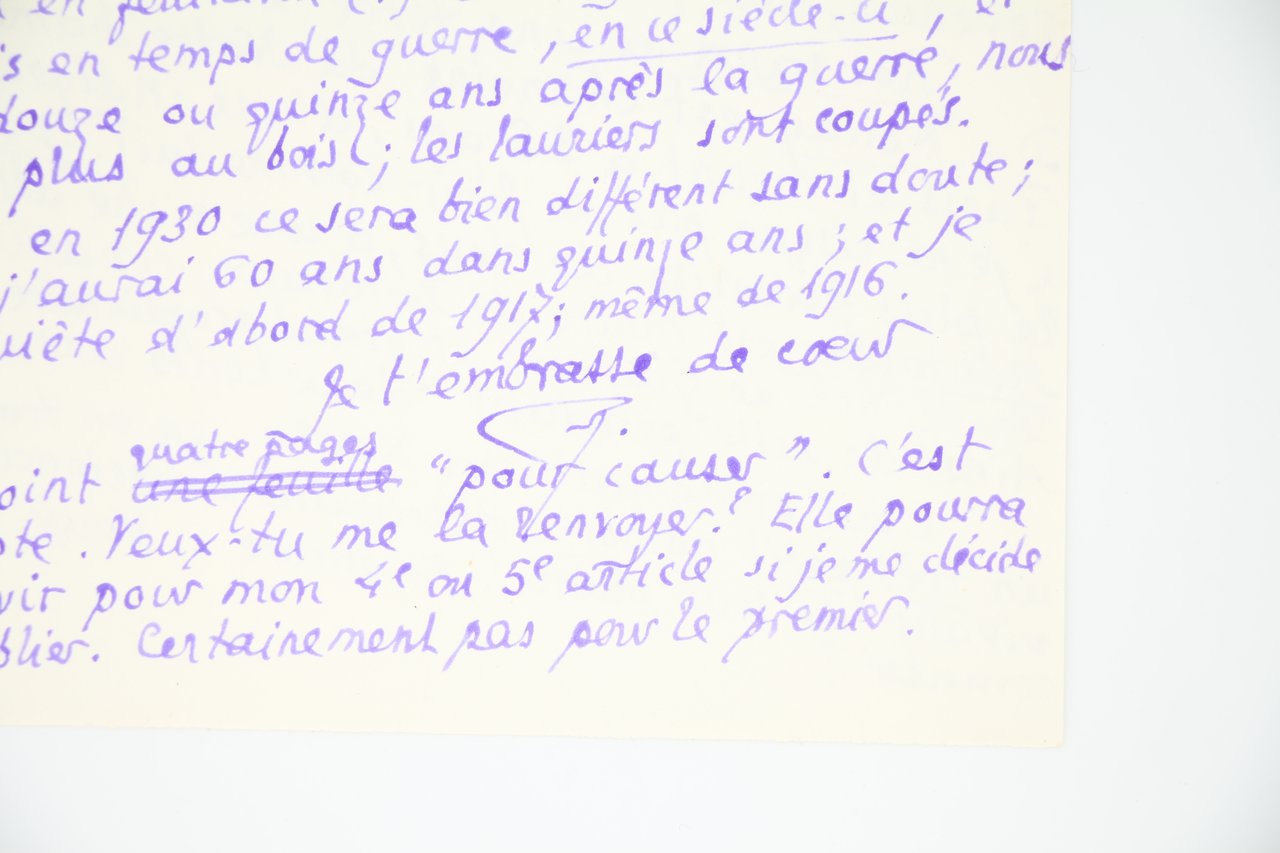 en
's en temps de guerre, en ce siècle-ci, et
douze ou quinze ans après la guerre, nous
plus au bois; les lauriers sont coupés.
en 1930 ce sera bien différent sans doute;
j'aurai 60 ans dans quinze ans; et je
uiète d'abord de 1917; même de 1916.
Je t'embrasse de cœur
J.
quatre pages
oint une feuille "pour causer". C'est
ote. Veux-tu me la renvoyer? Elle pourra
vir pour mon 4e ou 5e article si je me décide
blier. Certainement pas pour le premier.